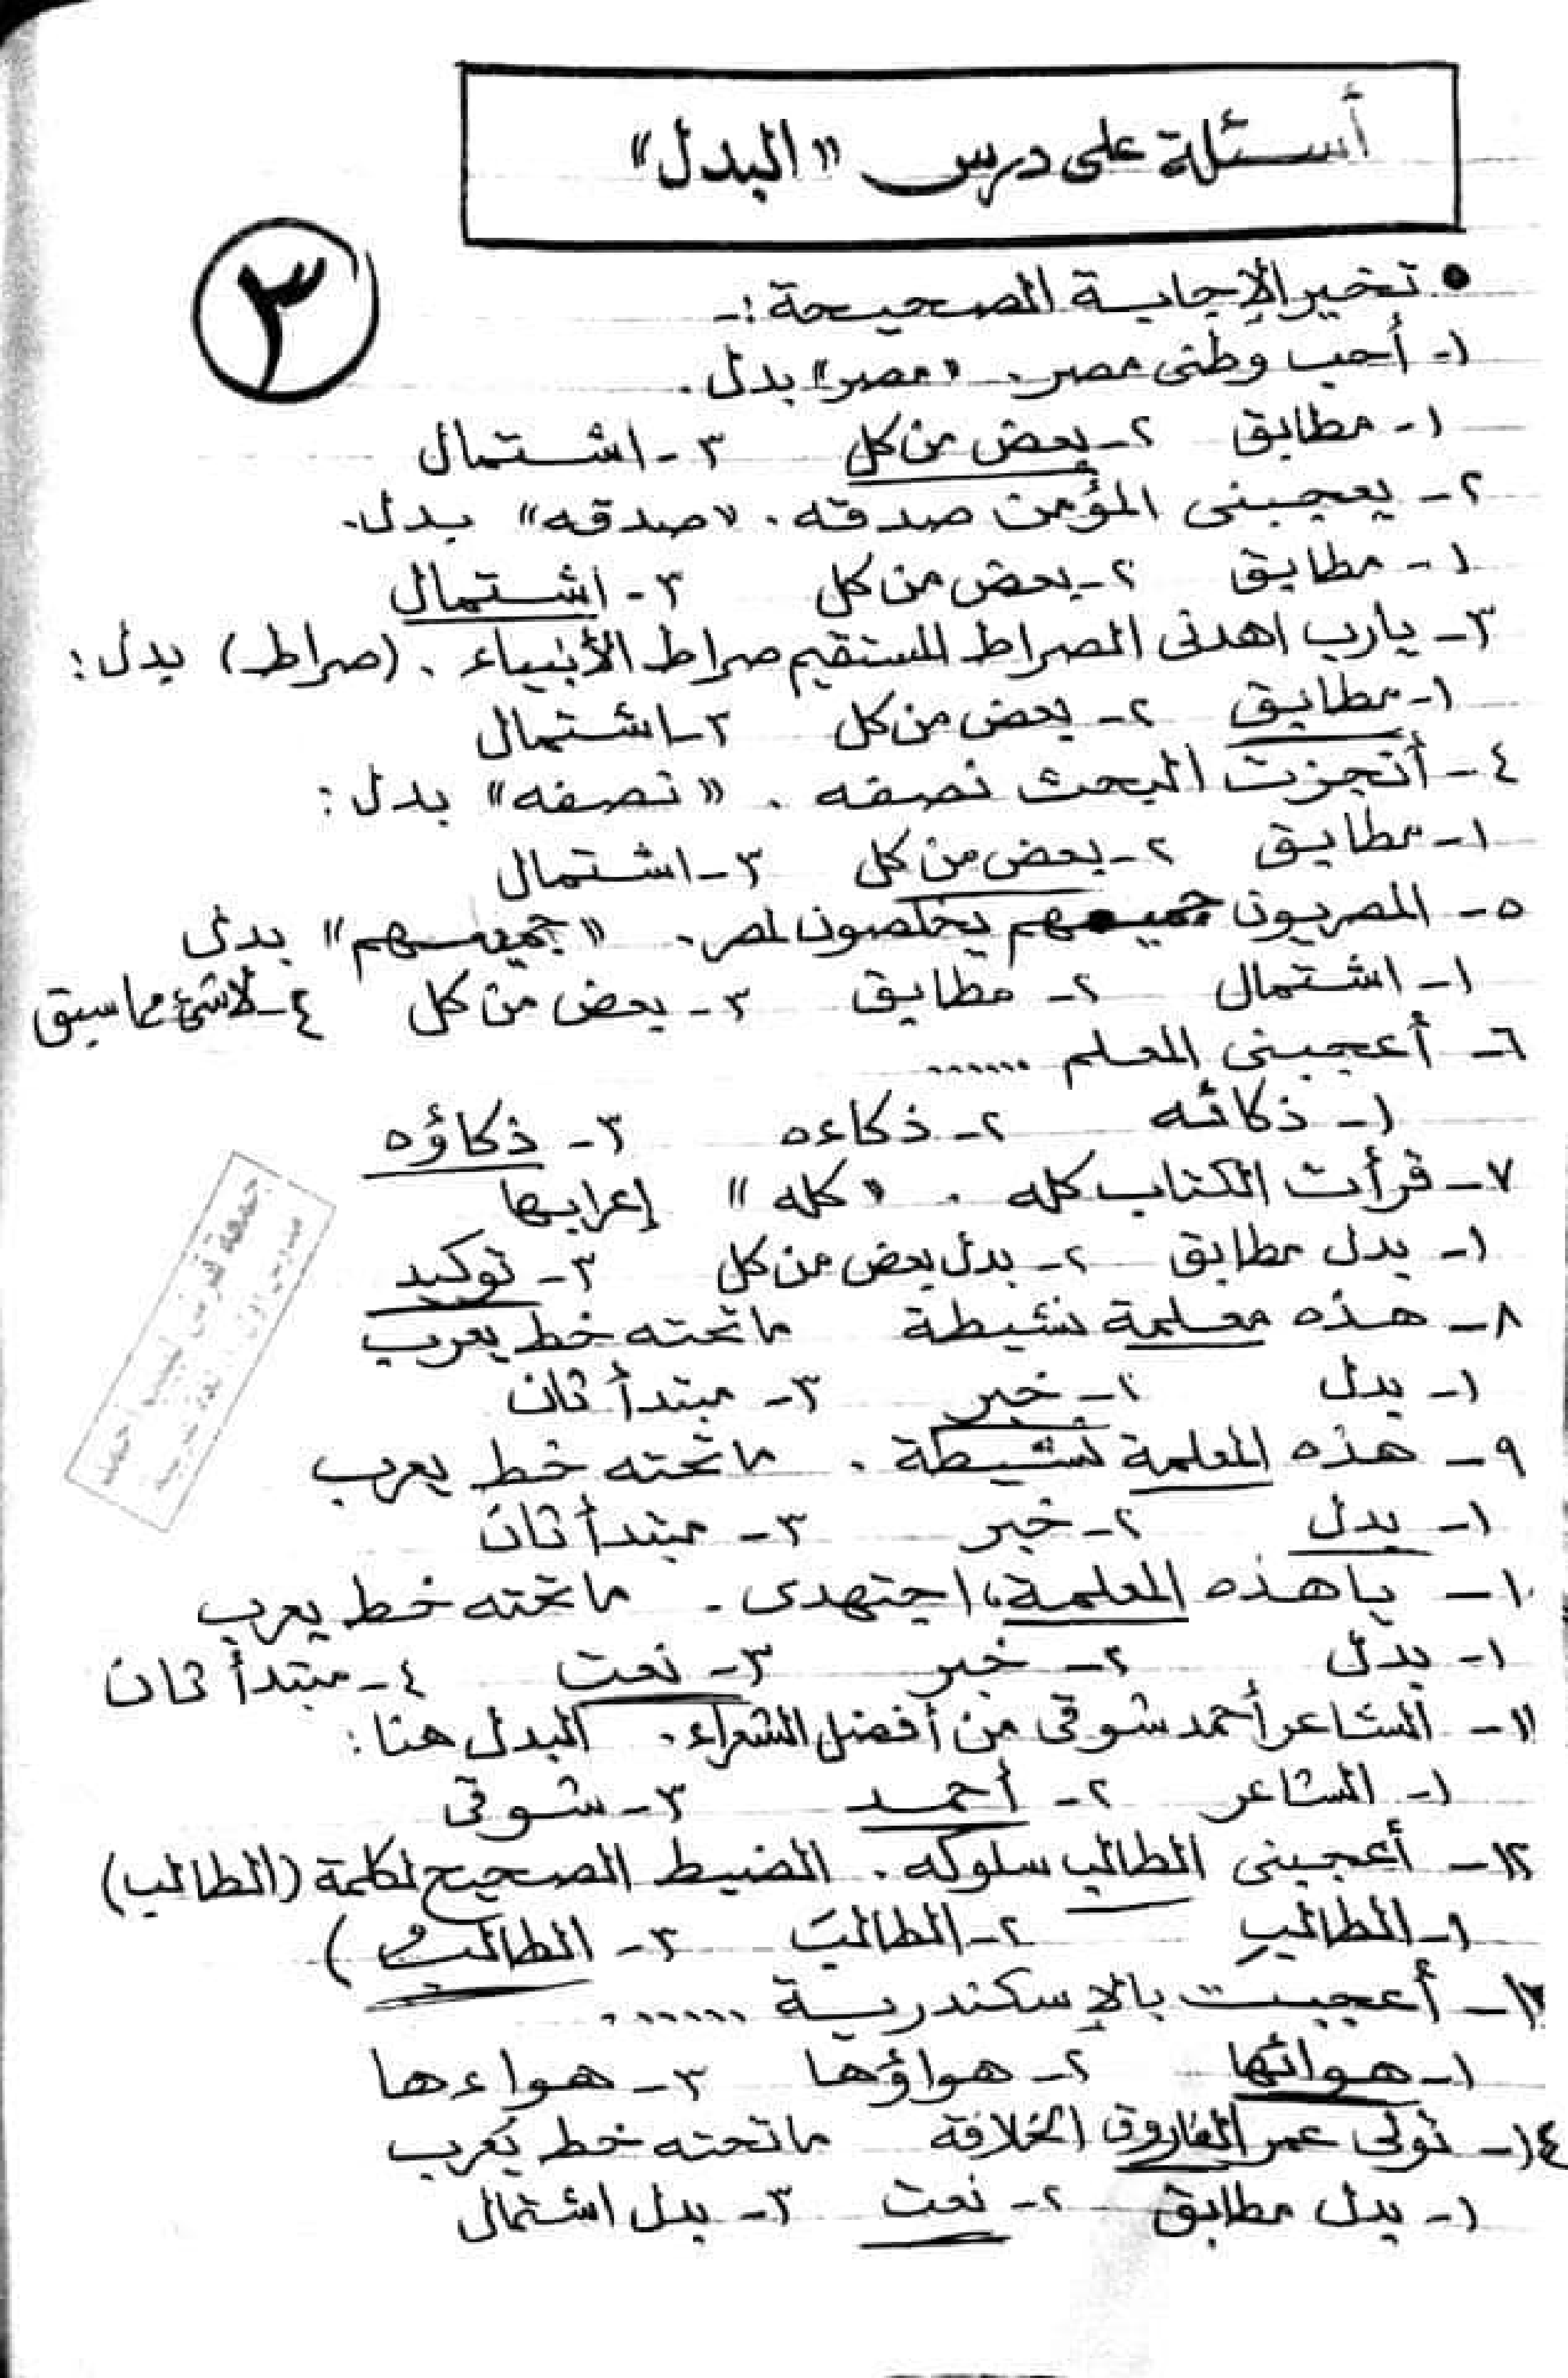 أسئلة على درس "البدل"
٣
• تخير الإجابة الصحيحة :-
١- أحب وطنى مصر. "مصر" بدل.
١- مطابق ٢- بعض من كل ٣- اشتمال
٢- يعجبنى المؤمن صدقه. "صدقه" بدل.
١- مطابق ٢- بعض من كل ٣- اشتمال
٣- يارب اهدنى الصراط المستقيم صراط الأنبياء. (صراط) بدل:
١- مطابق ٢- بعض من كل ٣- اشتمال
٤- أنجزت البحث نصفه. "نصفه" بدل:
١- مطابق ٢- بعض من كل ٣- اشتمال
٥- المصريون جميعهم يخلصون لمصر. "جميعهم" بدل
١- اشتمال ٢- مطابق ٣- بعض من كل ٤- لاشئ مما سبق
٦- أعجبنى المعلم ......
١- ذكائه ٢- ذكاءه ٣- ذكاؤه
٧- قرأت الكتاب كله. "كله" إعرابها
١- بدل مطابق ٢- بدل بعض من كل ٣- توكيد
٨- هذه معلمة نشيطة ماتحته خط يعرب
١- بدل ٢- خبر ٣- مبتدأ ثان
٩- هذه المعلمة نشيطة. ماتحته خط يعرب
١- بدل ٢- خبر ٣- مبتدأ ثان
١٠- ياهذه المعلمة، اجتهدى. ماتحته خط يعرب
١- بدل ٢- خبر ٣- نعت ٤- مبتدأ ثان
١١- الشاعر أحمد شوقى من أفضل الشعراء. البدل هنا:
١- الشاعر ٢- أحمد ٣- شوقى
١٢- أعجبنى الطالب سلوكه. الضبط الصحيح لكلمة (الطالب)
١- الطالبِ ٢- الطالبَ ٣- الطالبُ )
١٣- أعجبت بالإسكندرية ......
١- هوائها ٢- هواؤها ٣- هواءها
١٤- تولى عمر الفاروق الخلافة ماتحته خط يُعرب
١- بدل مطابق ٢- نعت ٣- بدل اشتمال